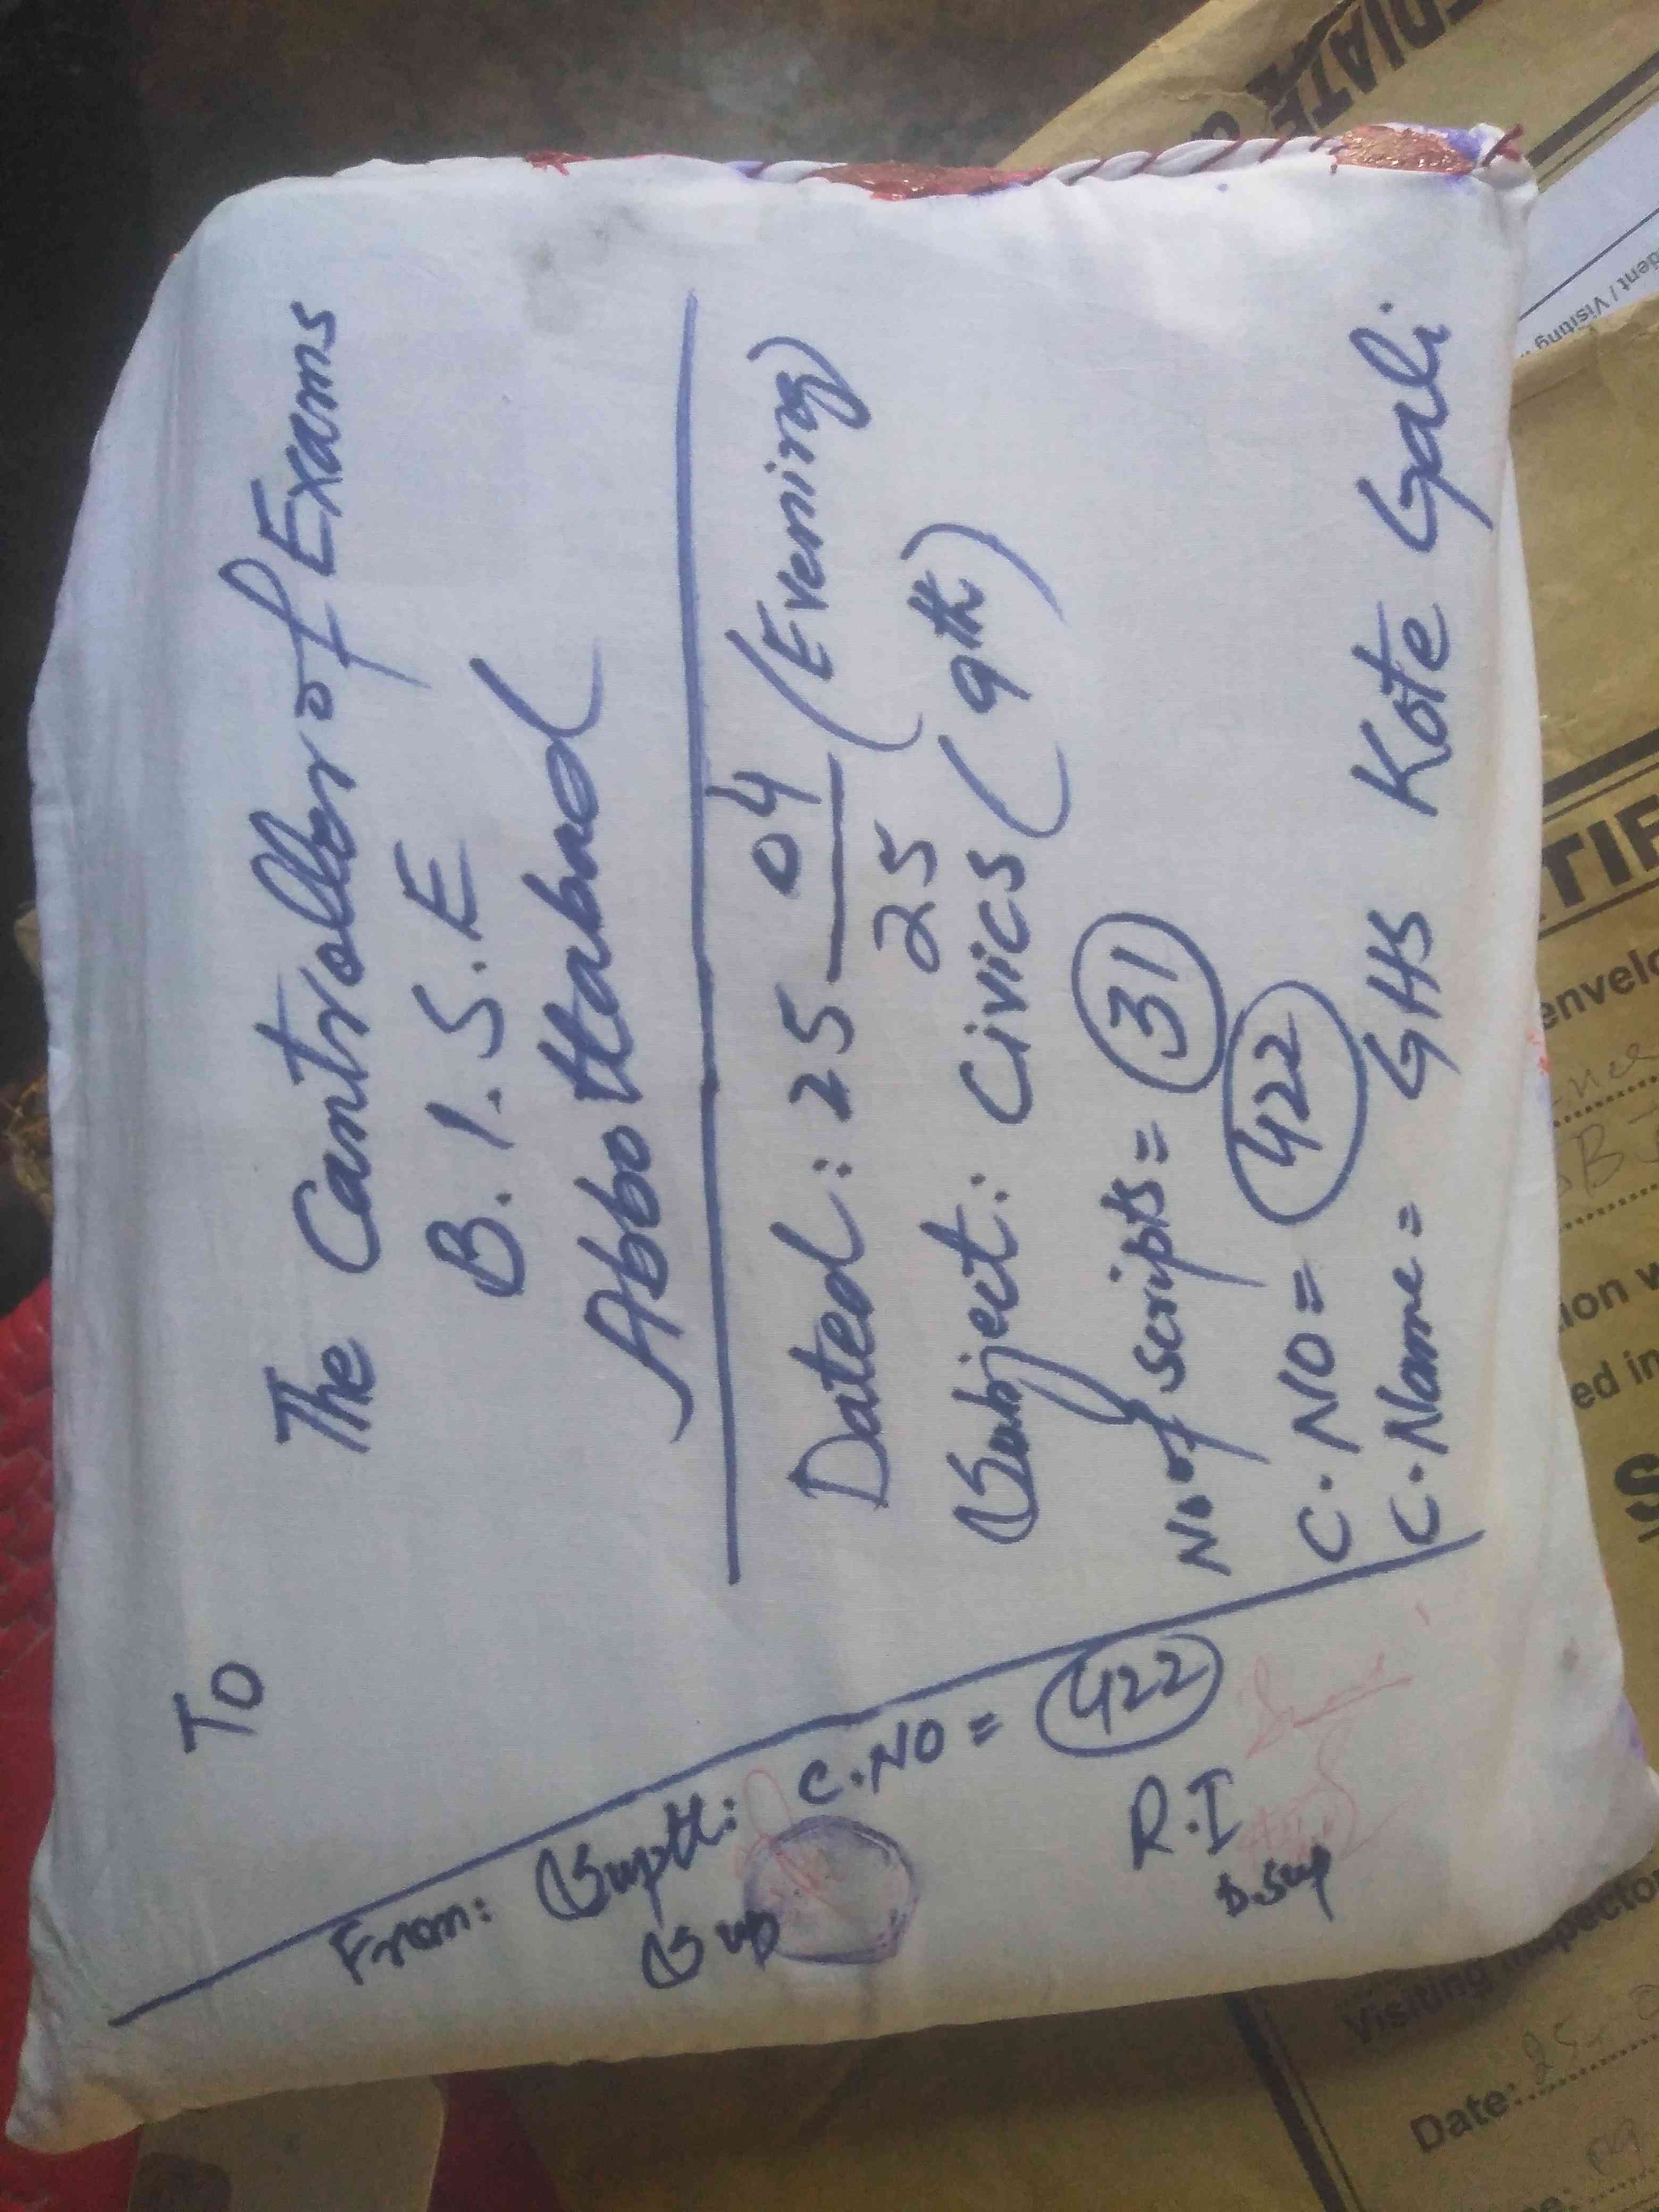 To
The Controller of Exams
B.I.S.E
Abbottabad
Dated: 25 04 (Evening)
25
Subject: Civics (9th)
No of scripts = 31
C.NO = 422
C.Name = GHS Kote Gali
From: Suptt: C.NO = 422
Sup
R.I
D.Sup
EDIATE &
dent / Visiting
TIF
envelo
ion w
ed in
S
Visiting Inspector
Date: 25